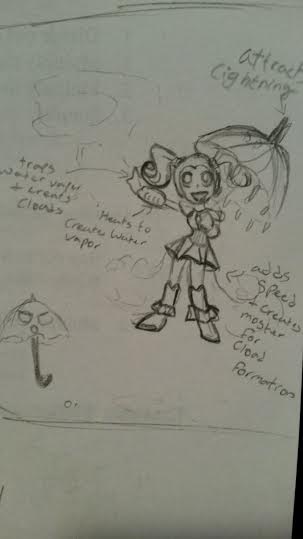 attract
Lightning
traps
water vapor
+ creats
clouds
Heats to
Create Water
vapor
adds
Speed
+ Creates
moister
for
Cloud
formation